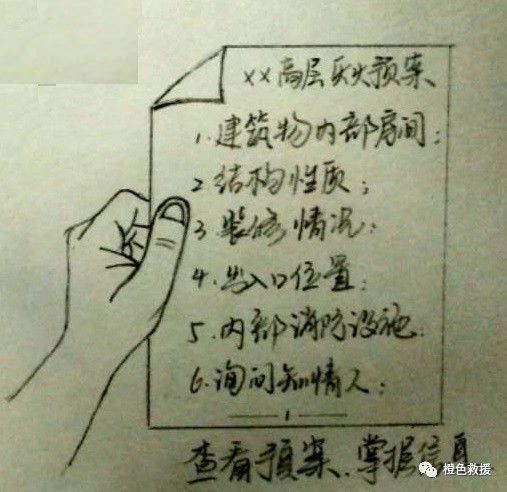 ××高层灭火预案
1.建筑物内部房间；
2.结构性质；
3.装修情况；
4.出入口位置；
5.内部消防设施；
6.询问知情人；
1
查看预案、掌握信息
橙色救援